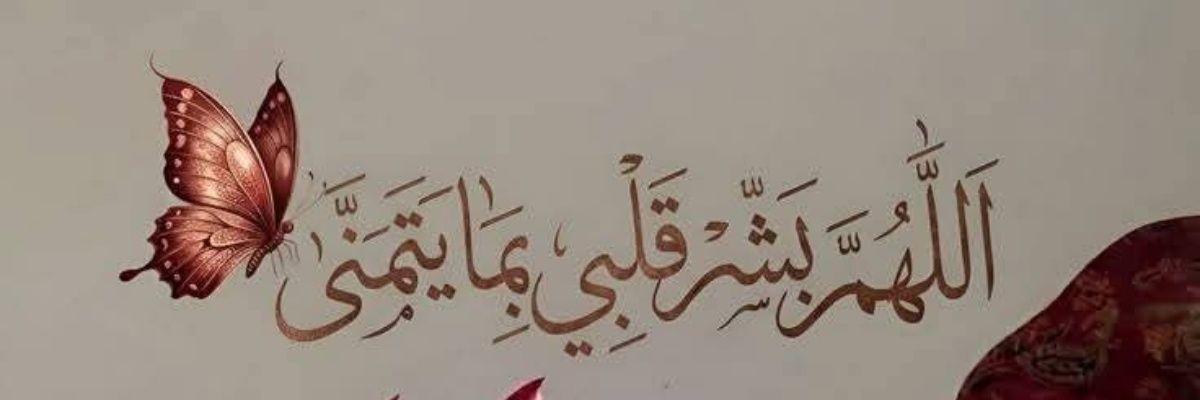 اَللّٰهُمَّ بَشِّرْ قَلْبِي بِمَا يَتَمَنَّى